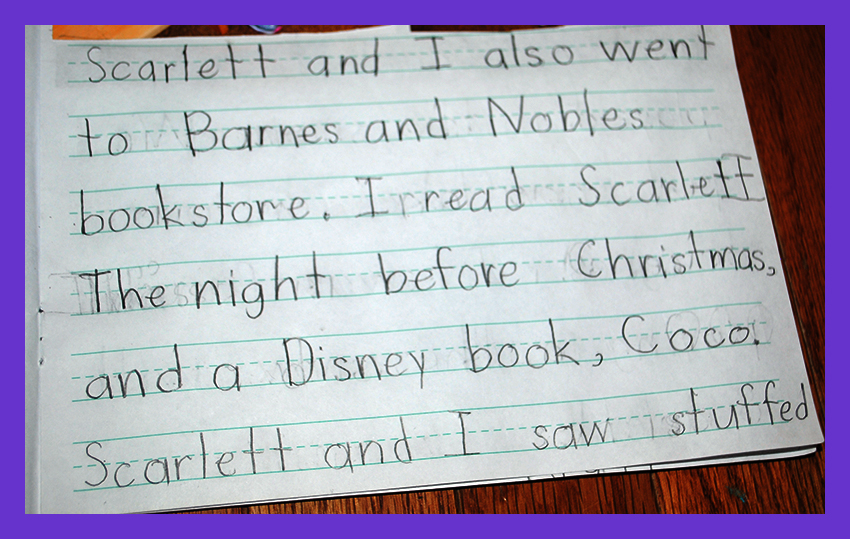 Scarlett and I also went
to Barnes and Nobles
bookstore. I read Scarlett
The night before Christmas,
and a Disney book, Coco.
Scarlett and I saw stuffed